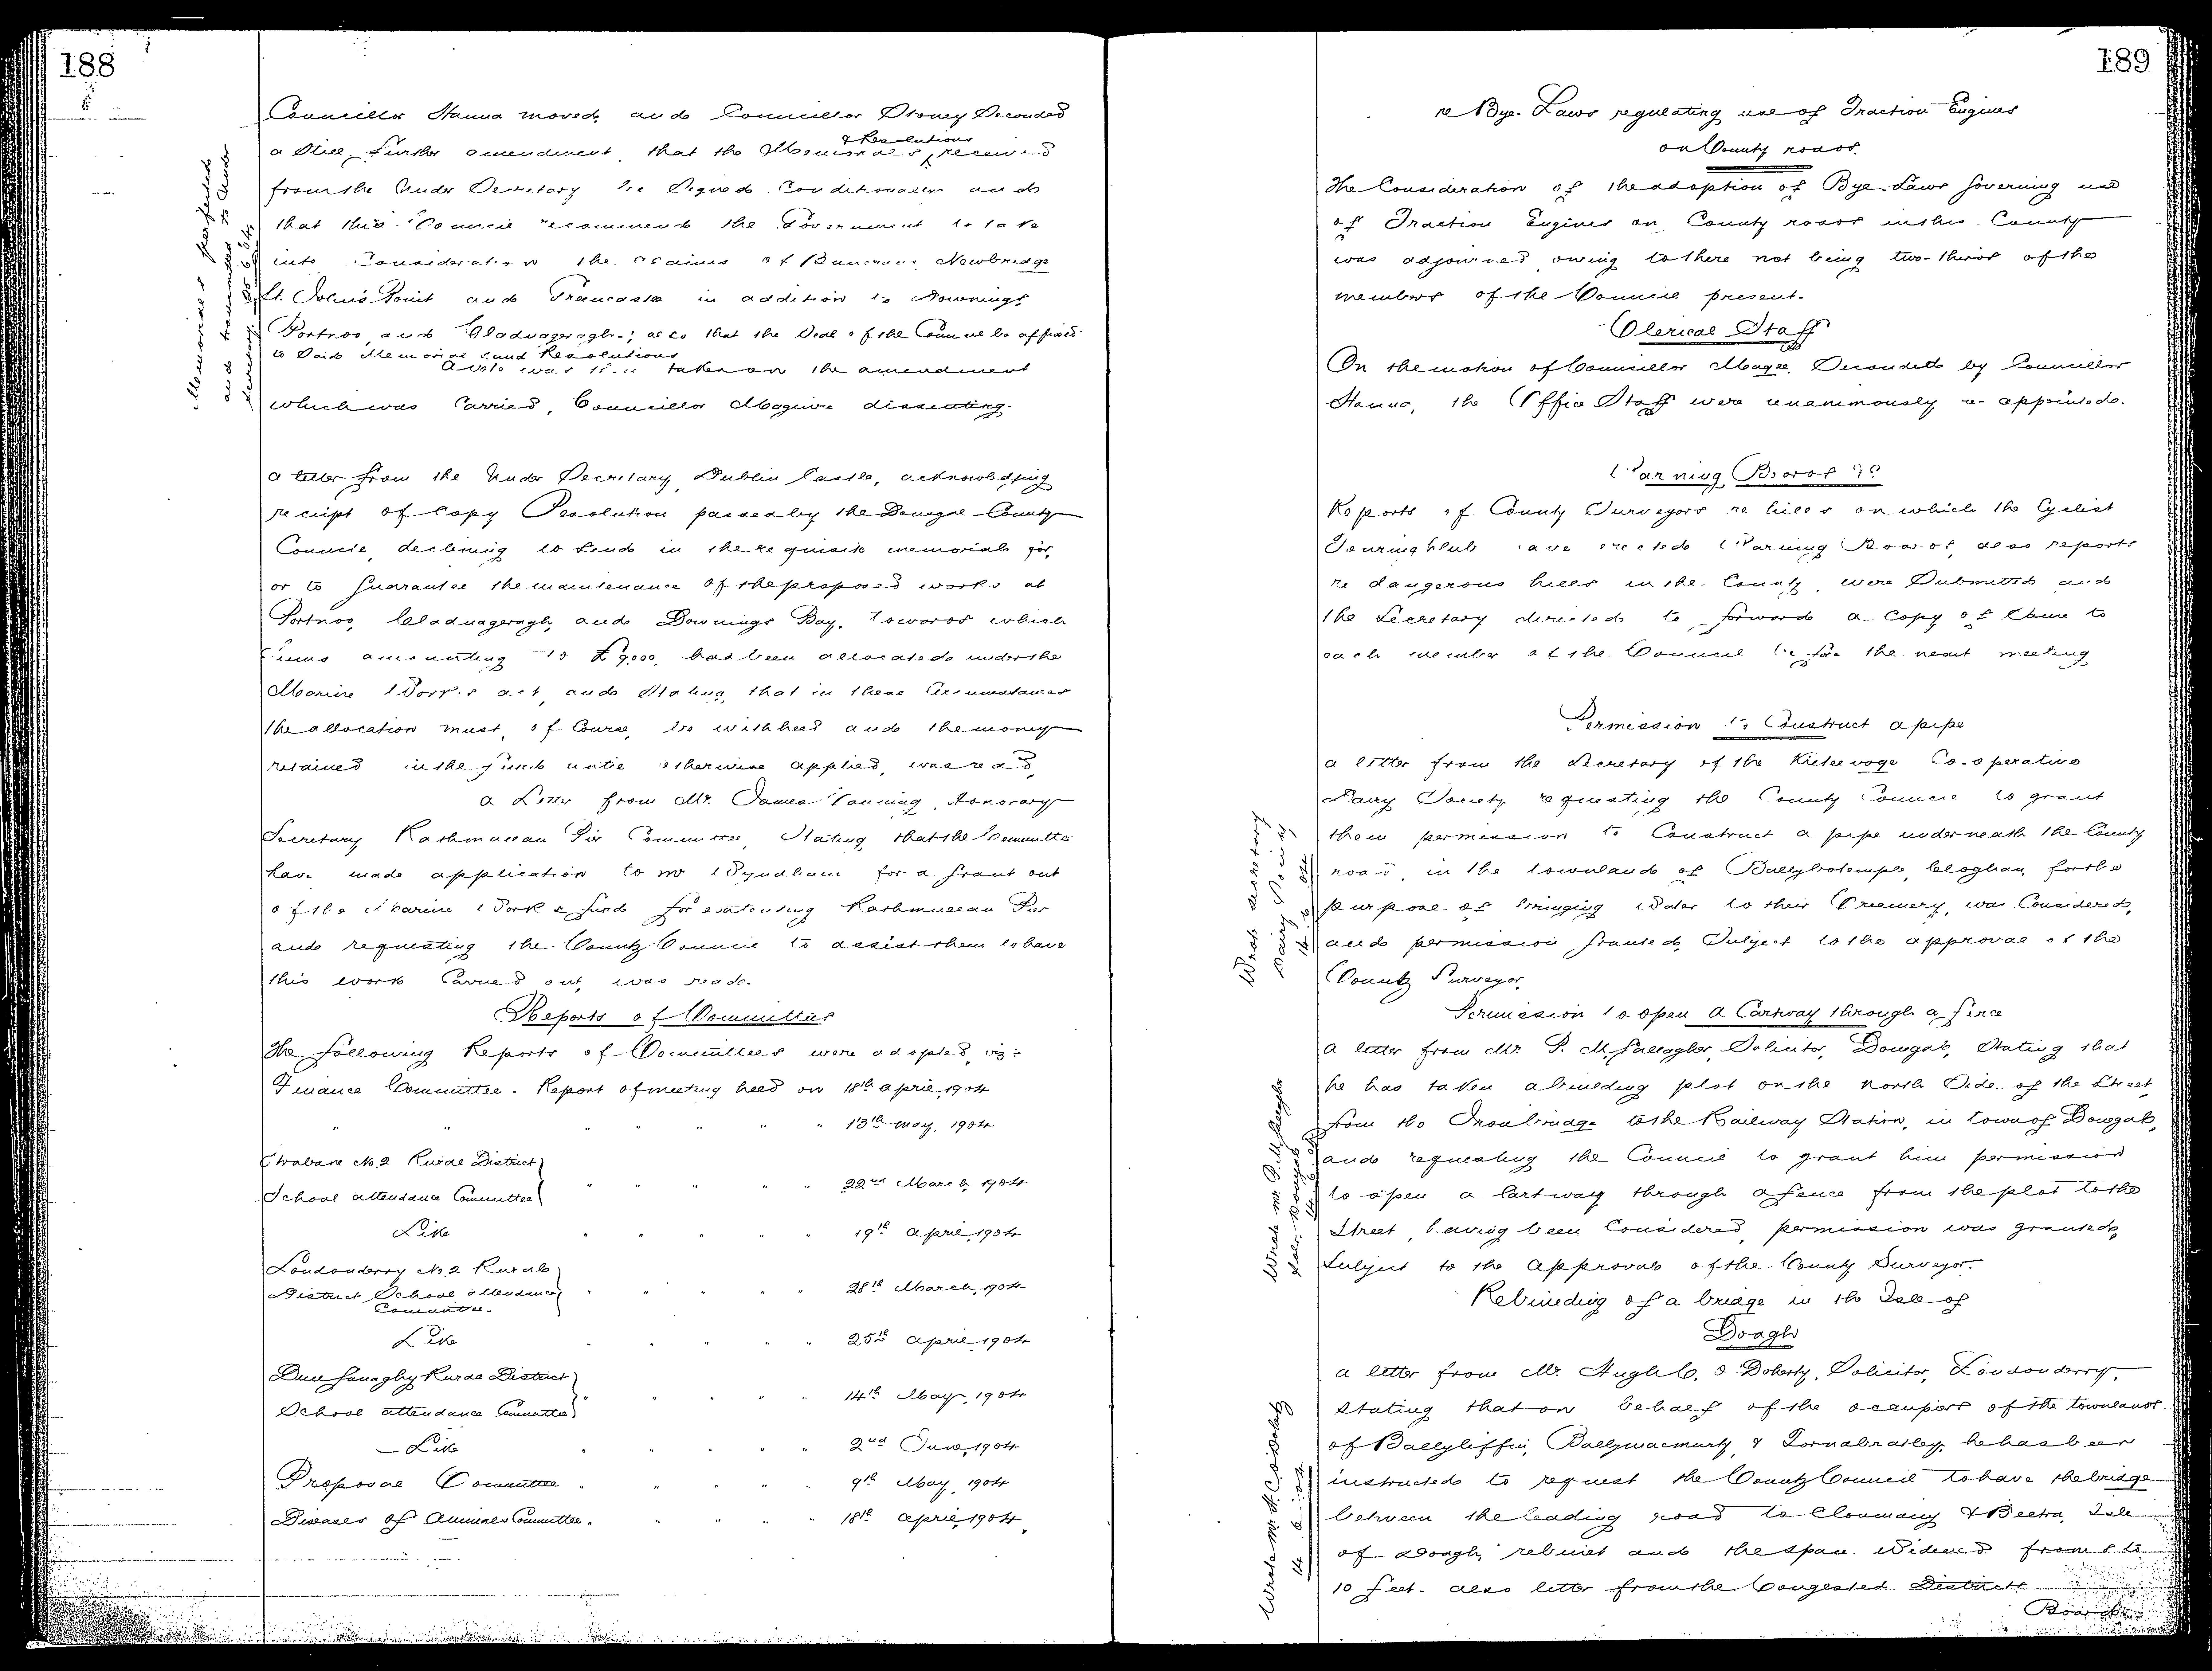 188
Councillor Hanna moved, and Councillor Stoney Seconded
& Resolutions
a still further amendment, that the Memorials, received
from the Under Secretary be Signed Conditionally and
that this Council recommends the Government to take
into Consideration the claims of Buncrana, Newbridge
St. John's Point and Greencastle in addition to Downings
Portnoo, and Cladnageragh; also that the Seal of the Council be affixed
to Said Memorial and Resolutions
A vote was then taken on the amendment
which was Carried, Councillor Maguire dissenting.
Memorials perfected
and transmitted to Under
Secretary
a letter from the Under Secretary, Dublin Castle, acknowledging
receipt of Copy Resolution passed by the Donegal County
Council, declining to Send in the requisite memorials for,
or to Guarantee the maintenance of the proposed works at
Portnoo, Cladnageragh, and Downings Bay, towards which
Sums amounting to £9,000, had been allocated under the
Marine Works act, and Stating that in these Circumstances
the allocation must, of Course, be withheld and the money
retained in the fund until otherwise applied, was read,
a Letter from Mr. James Fanning, Honorary
Secretary Rathmullan Pier Committee, Stating that the Committee
have made application to Mr Wyndham for a Grant out
of the Marine Works fund for extending Rathmullan Pier
and requesting the County Council to assist them to have
this work Carried out, was read.
Reports of Committees
The following Reports of Committees were adopted, viz:-
Finance Committee - Report of meeting held on 18th april, 1904
" " " " " " " 13th May, 1904
Strabane No. 2 Rural District
School attendance Committee " " " " " 22nd March, 1904
Like " " " " " 19th april, 1904
Londonderry No. 2 Rural
District School attendance
Committee " " " " " 28th March, 1904
Like " " " " " 25th april, 1904
Dunfanaghy Rural District
School attendance Committee " " " " " 14th May, 1904
Like " " " " " 2nd June, 1904
Proposal Committee " " " " " 9th May, 1904
Diseases of animals Committee. " " " " 18th april, 1904
189
re Bye-Laws regulating use of Traction Engines
on County roads.
The Consideration of the adoption of Bye-Laws Governing use
of Traction Engines on County roads in this County
was adjourned owing to there not being two-thirds of the
members of the Council present.
Clerical Staff
On the motion of Councillor Magee, Seconded by Councillor
Hanna, the Office Staff were unanimously re-appointed.
Warning Boards &c
Reports of County Surveyors re hills on which the Cyclist
Touring Club have erected Warning Boards, also reports
re dangerous hills in the County, were Submitted and
the Secretary directed to forward a Copy of Same to
each member of the Council before the next meeting
Permission to Construct a pipe
a letter from the Secretary of the Co-operative
Dairy Society requesting the County Council to grant
them permission to Construct a pipe underneath the County
road, in the townland of Ballybotemple, Cloghan, for the
purpose of bringing Water to their Creamery, was Considered,
and permission Granted, Subject to the approval of the
County Surveyor.
Wrote Secretary
Dairy Society
14. 6. 04
Permission to open a Cartway through a fence
a letter from Mr. P. M. Gallagher, Solicitor, Donegal, Stating that
he has taken a building plot on the north Side of the Street,
from the Ironbridge to the Railway Station, in town of Donegal,
and requesting the Council to grant him permission
to open a Cartway through a fence from the plot to the
Street, having been Considered, permission was granted,
Subject to the approval of the County Surveyor.
Wrote Mr P. M. Gallagher
Solr. Donegal
Rebuilding of a bridge in the Isle of
Doagh
a letter from Mr. Hugh C. O'Doherty, Solicitor, Londonderry,
Stating that on behalf of the occupiers of the townlands
of Ballyliffin, Ballymacmurty, & Tornabratley, he has been
instructed to request the County Council to have the bridge
between the leading road to Clonmany & Beltra, Isle
of Doagh, rebuilt and the span widened from 8 to
10 feet. also letter from the Congested Districts
Board
Wrote Mr. H. C. O'Doherty
14. 6. 04